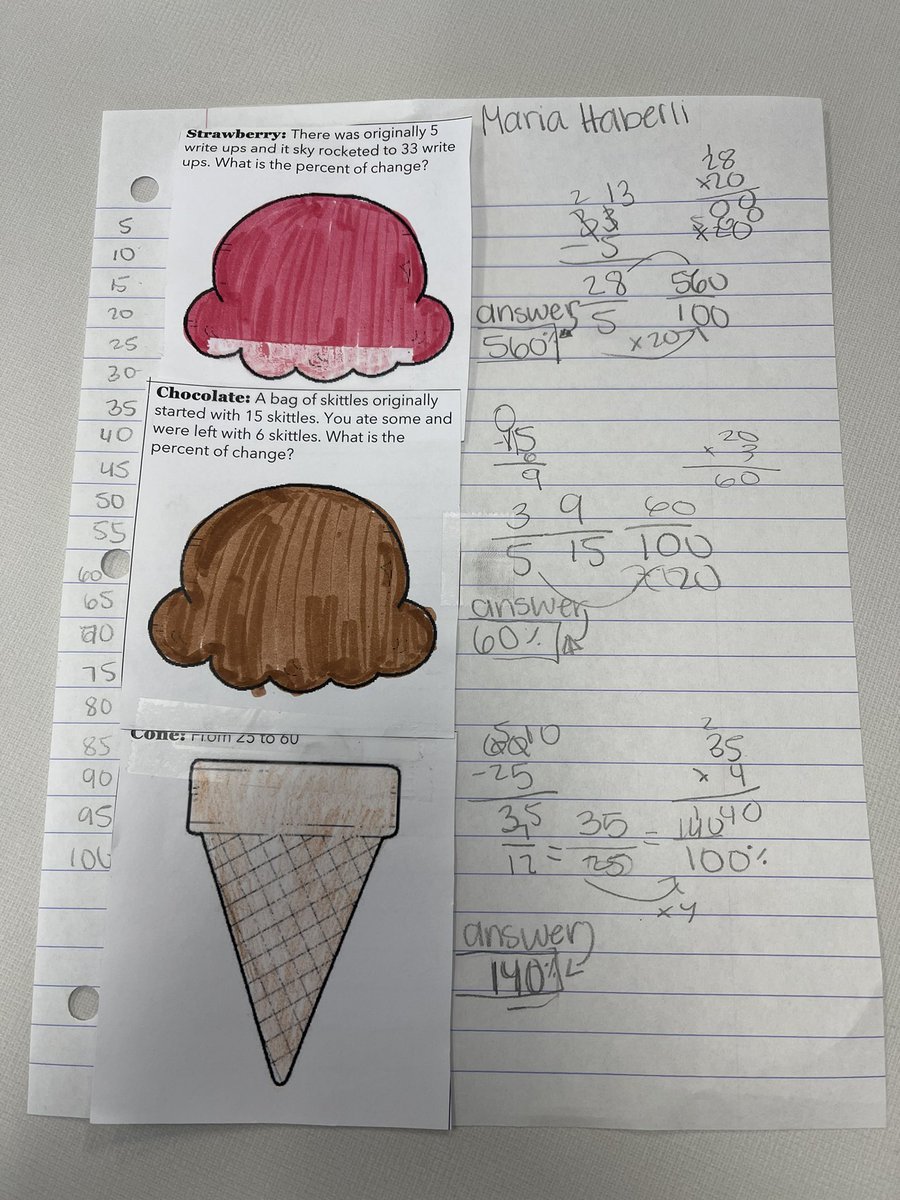 Maria Haberli
Strawberry: There was originally 5
write ups and it sky rocketed to 33 write
ups. What is the percent of change?
5
10
15
20
25
30
35
40
45
50
55
60
65
70
75
80
85
90
95
100
2 13
33
- 5
28
5
560
100
x20
answer
560%
28
x20
00
560
Chocolate: A bag of skittles originally
started with 15 skittles. You ate some and
were left with 6 skittles. What is the
percent of change?
0
-15
6
9
20
x 3
60
3 9 60
5 15 100
x20
answer
60%
Cone: From 25 to 60
5 10
60
-25
35
2
35
x 4
140
= 35 = 140
25 100%
x4
answer
140%